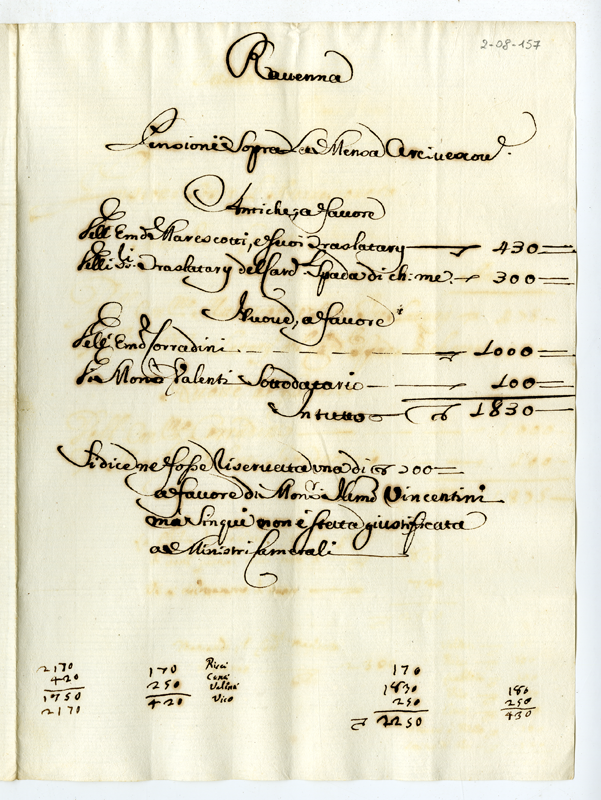 2-08-157
Ravenna
Pensioni Sopra La Mensa Arcivescov.
Antiche, a favore
Dell' Emo Marescotti, e suoi Traslatarÿ 430
Delli Traslatarÿ del Card. Spada di ch: me. 300
Nuove, a favore
Dell' Emo Corradini 1000
Di Mons. Valenti Sottodatario 100
In tutto 1830
Si dice ne fosse Riservata una di 200
a favore di Mons. Nunzio Vincentini
ma Sinqui non è stata giustificata
a Ministri Camerali
2170
420
1750
2170
170
250
420
Ricci
Vico
170
1830
250
2250
180
250
430